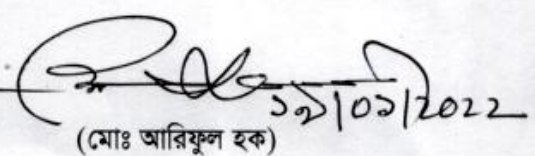 ১৯|০১|2022
(মোঃ আরিফুল হক)